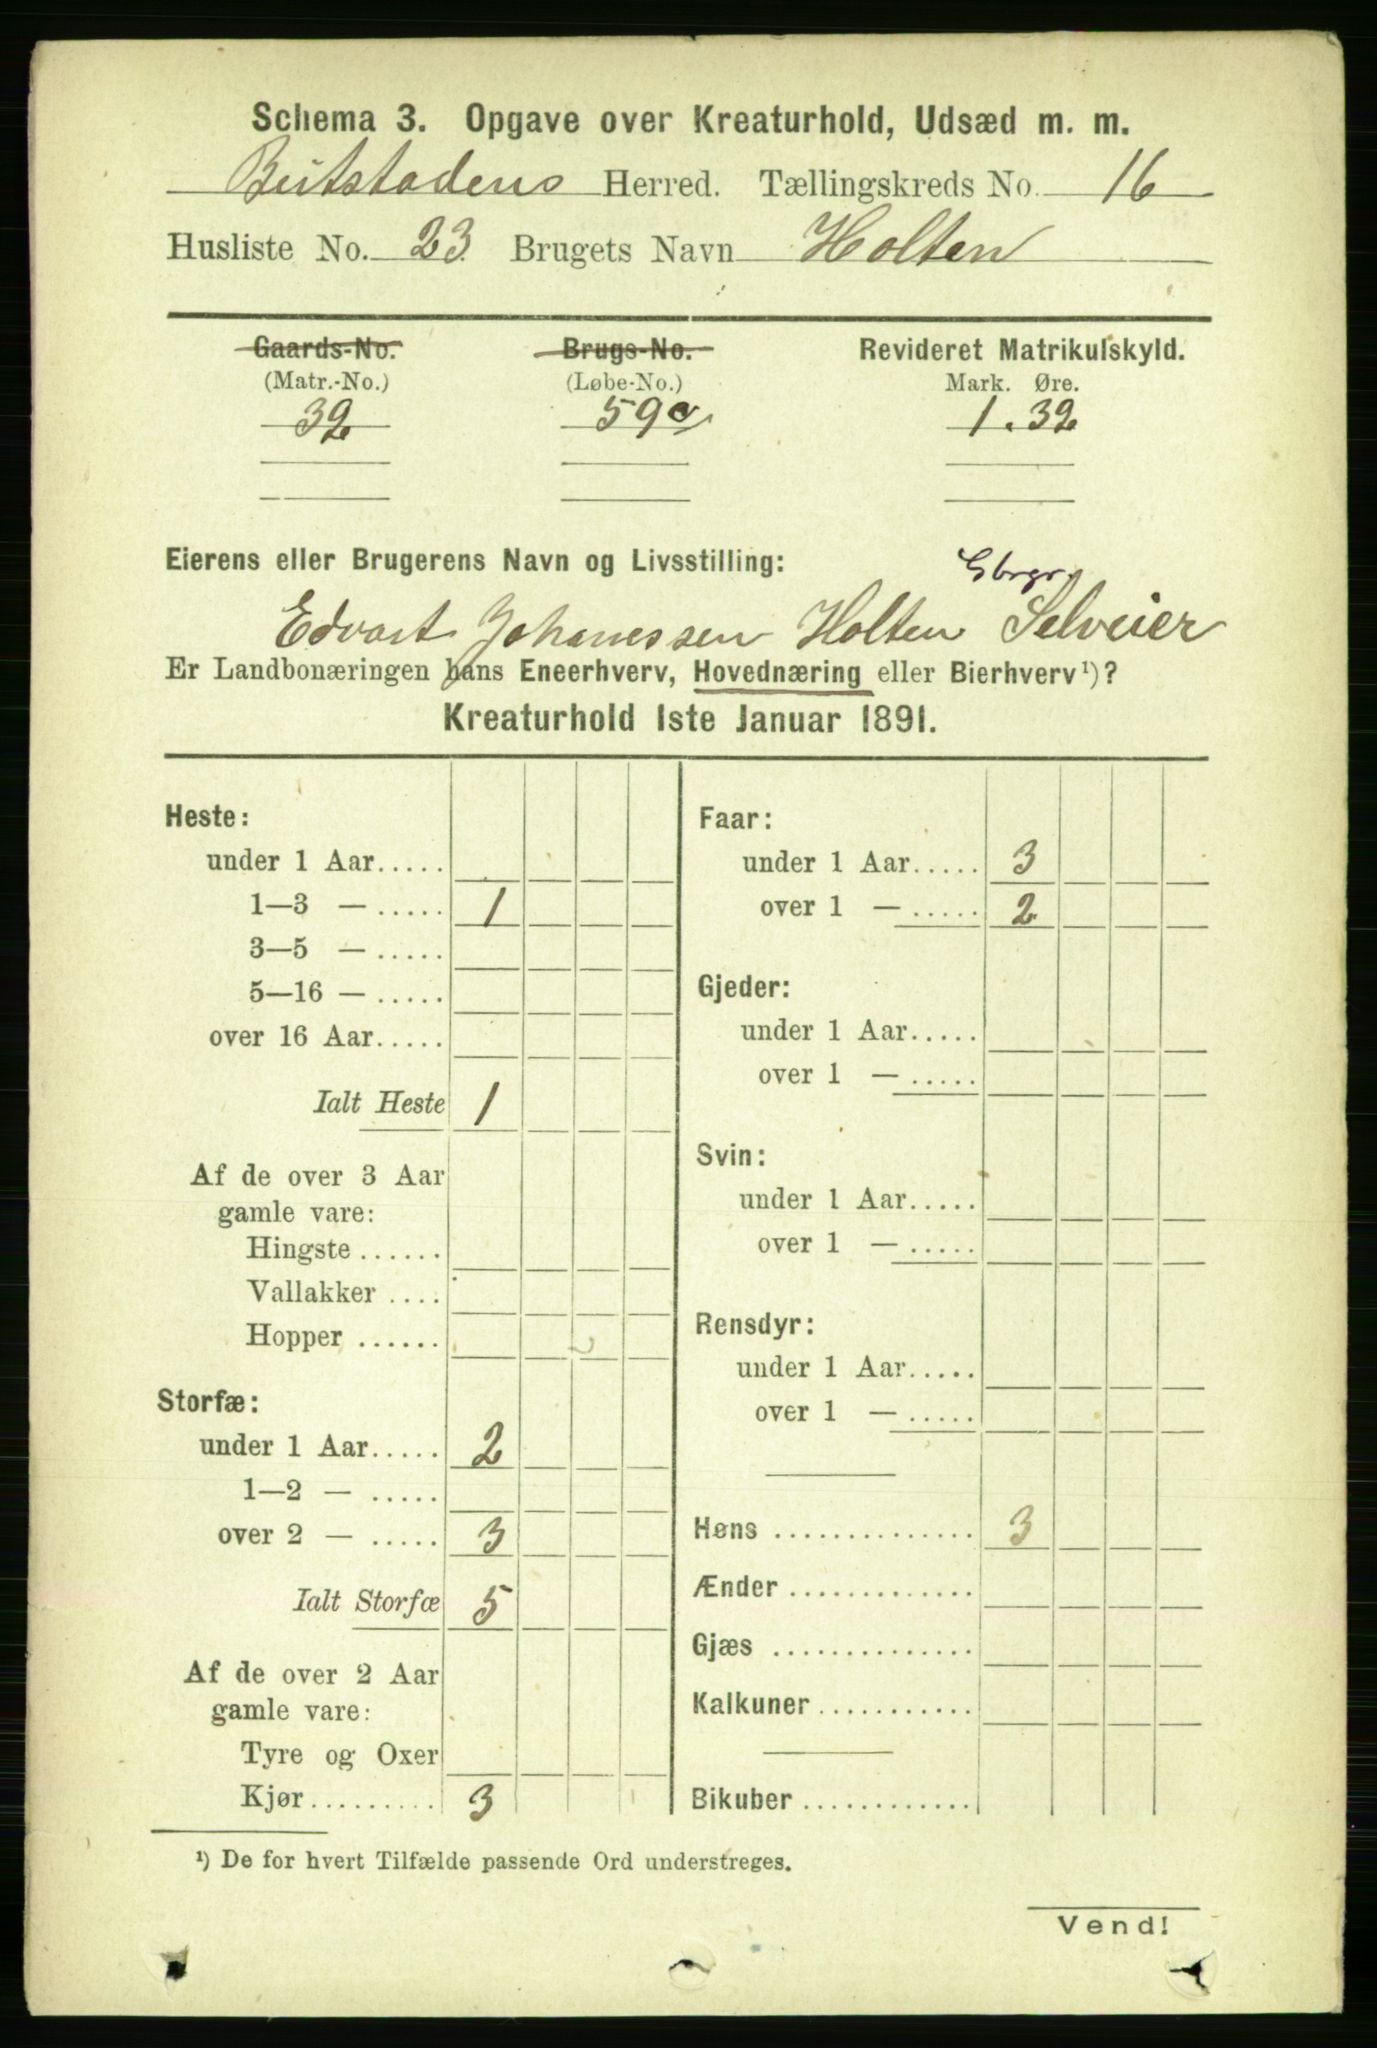 Schema 3. Opgave over Kreaturhold, Udsæd m. m.
Beitstadens Herred. Tællingskreds No. 16
Husliste No. 23 Brugets Navn Holten
Gaards-No. Brugs-No. Revideret Matrikulskyld.
(Matr.-No.) (Løbe-No.) Mark. Øre.
32 59c 1.32
Eierens eller Brugerens Navn og Livsstilling:
Gbrgr.
Edvart Johanessen Holten Selveier
Er Landbonæringen hans Eneerhverv, Hovednæring eller Bierhverv¹)?
Kreaturhold 1ste Januar 1891.
Heste:
under 1 Aar.....
1—3 — ..... 1
3—5 — .....
5—16 — .....
over 16 Aar.....
Ialt Heste 1
Af de over 3 Aar
gamle vare:
Hingste ......
Vallakker ....
Hopper ......
Storfæ:
under 1 Aar..... 2
1—2 — .....
over 2 — ..... 3
Ialt Storfæ 5
Af de over 2 Aar
gamle vare:
Tyre og Oxer
Kjør......... 3
Faar:
under 1 Aar..... 3
over 1 — ..... 2
Gjeder:
under 1 Aar.....
over 1 — .....
Svin:
under 1 Aar.....
over 1 — .....
Rensdyr:
under 1 Aar.....
over 1 — .....
Høns .............. 3
Ænder .............
Gjæs ..............
Kalkuner ...........
Bikuber ............
¹) De for hvert Tilfælde passende Ord understreges.
Vend!